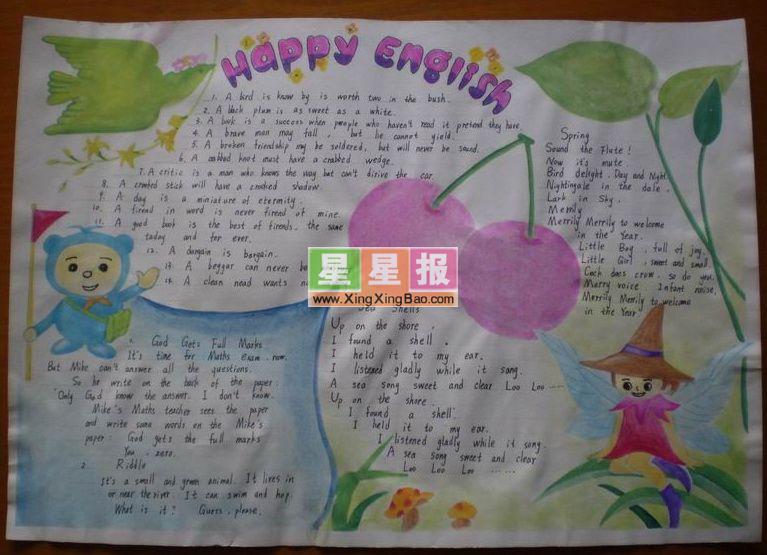 Happy English
1. A bird is know by is worth two in the bush.
2. A black plum is as sweet as a white.
3. A book is a success when people who haven't read it pretend they have.
4. A brave man may fall, but he cannot yield.
5. A broken friendship may be soldered, but will never be sound.
6. A cabbed knot must have a crabbed wedge.
7. A critic is a man who knows the way but can't dirive the car.
8. A crooked stick will have a crooked shadow.
9. A day is a miniature of eternity.
10. A firend in word is never firend of mine.
11. A good book is the best of firends, the same
today and for ever.
12. A bargain is bargain.
13. A beggar can never b
14. A clean
wants n
星星报
www.XingXingBao.com
Spring
Sound the Flute!
Now it's mute.
Bird delight. Day and Night.
Nightingale in the dale.
Lark in Sky.
Merrily
Merrily Merrily to welcome
in the Year.
Little Boy, full of joy.
Little Girl, sweet and small.
Cock does crow. so do you.
Merry voice. Infant noise.
Merrily Merrily to welcome
in the Year
Sea Shells
Up on the shore.
I found a shell.
I held it to my ear.
I listened gladly while it song.
A sea song sweet and clear Loo Loo ......
Up on the shore.
I found a shell.
I held it to my ear.
I listened gladly while it song.
A sea song sweet and clear
Loo Loo Loo ......
1. God Gets Full Marks
It's time for Maths exam now.
But Mike can't answer all the questions.
So he write on the back of the paper:
"Only God know the answer. I don't know.
Mike's Maths teacher sees the paper
and write some words on the Mike's
paper: God gets the full marks
You, zero.
2. Riddle
It's a small and green animal. It lives in
or near the river. It can swim and hop.
What is it? Guess, please.